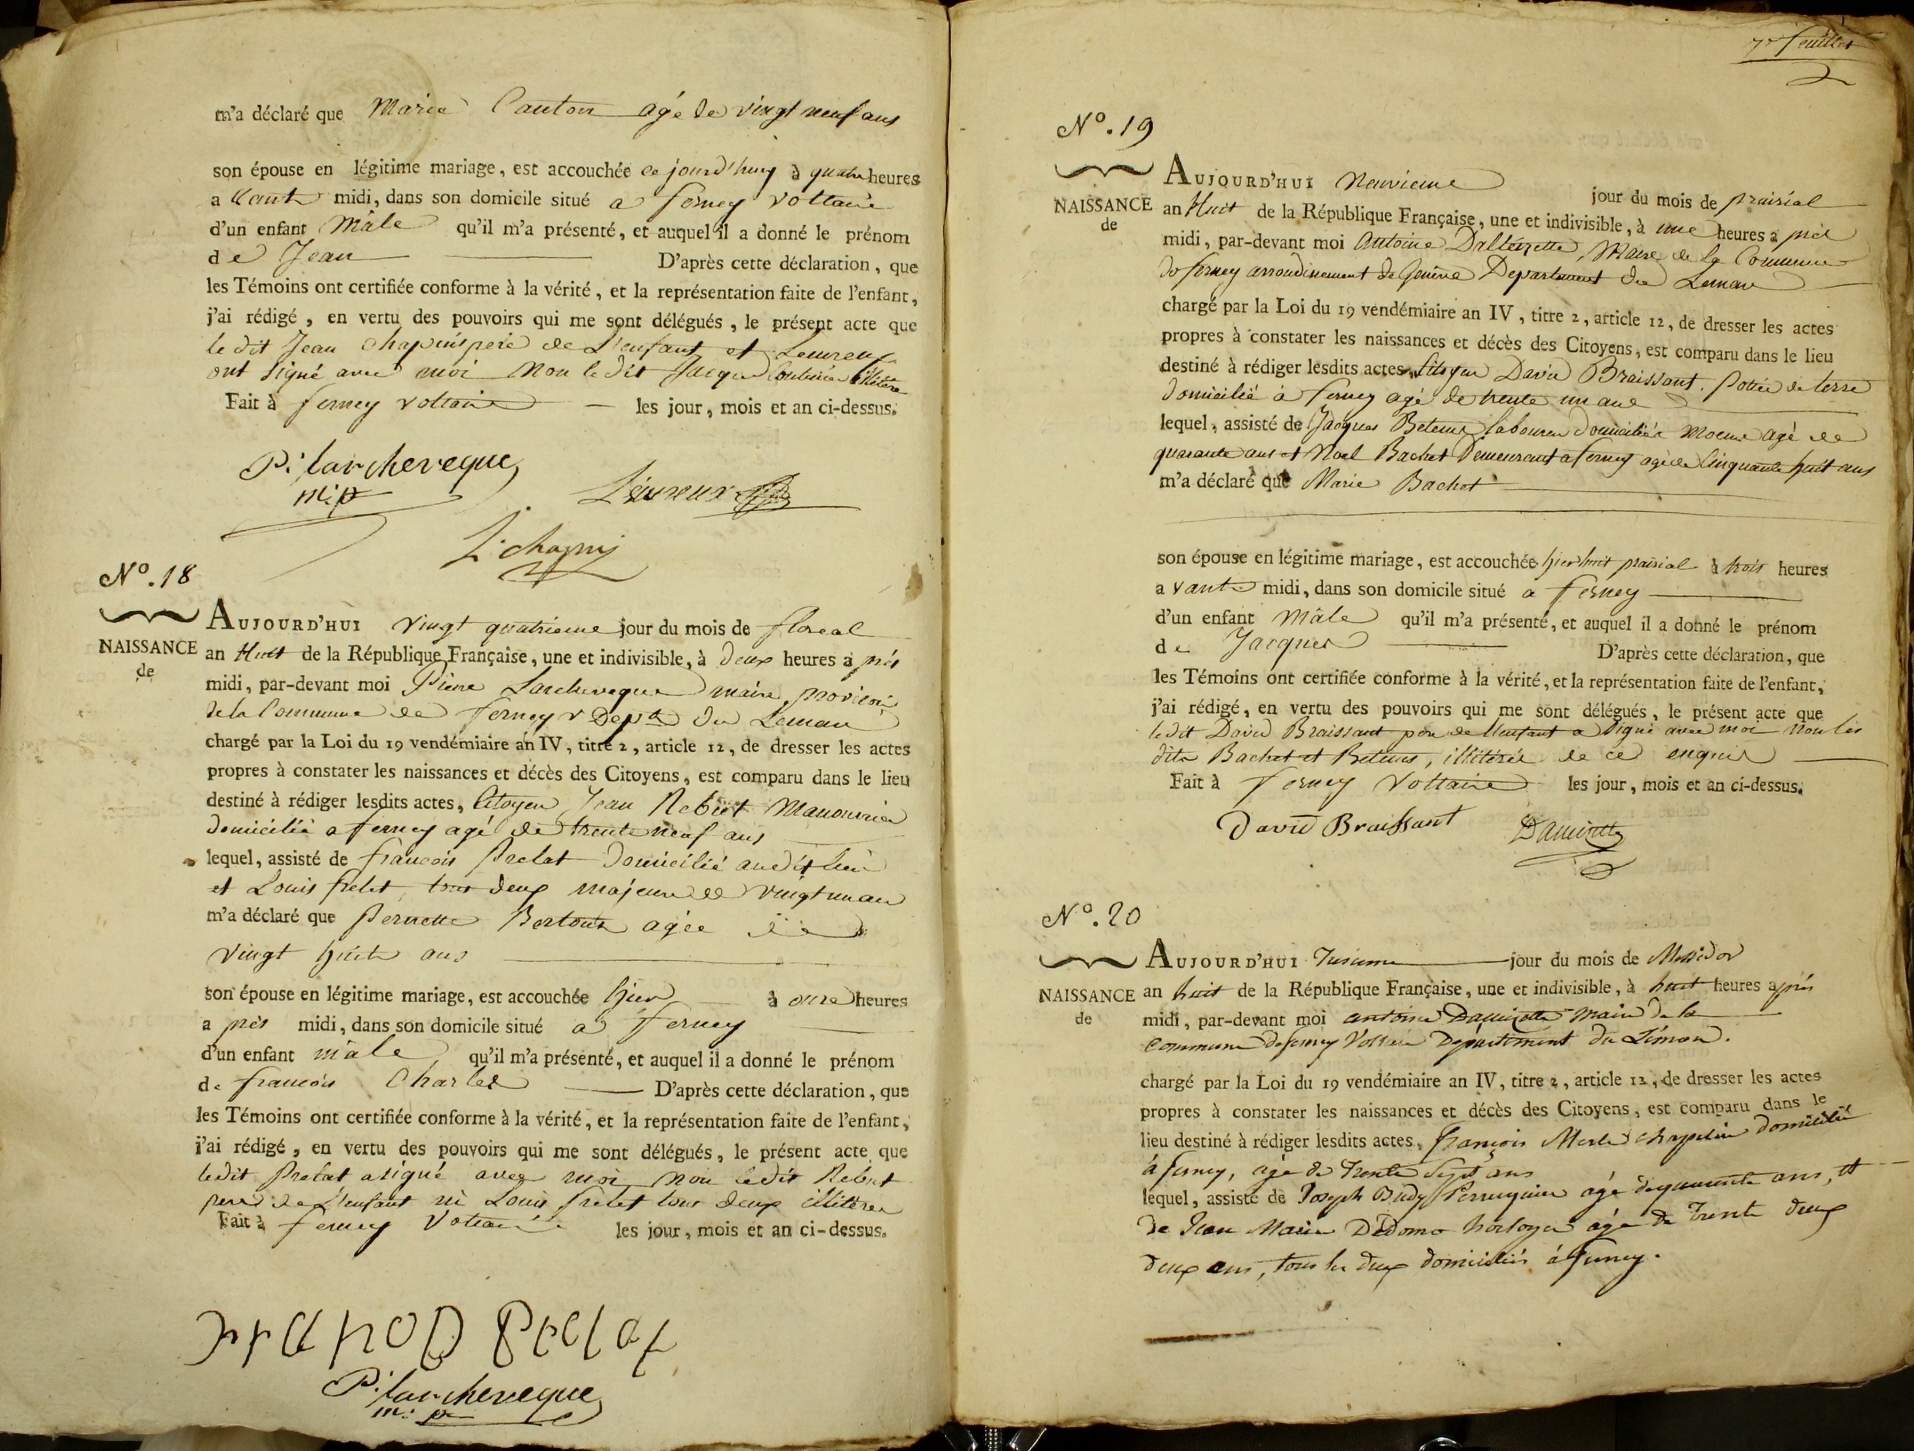 m'a déclaré que Marie Canton agé de vingt neuf ans
son épouse en légitime mariage, est accouchée ce jourd'huy à quatre heures
a vant midi, dans son domicile situé a ferney voltaire
d'un enfant Mâle qu'il m'a présenté, et auquel il a donné le prénom
de Jean D'après cette déclaration, que
les Témoins ont certifiée conforme à la vérité, et la représentation faite de l'enfant,
j'ai rédigé, en vertu des pouvoirs qui me sont délégués, le présent acte que
le dit Jean père de L'enfant et
ont signé avec moi Non le dit Jacque illiteré
Fait à ferney voltaire les jour, mois et an ci-dessus.
P. larcheveque
m. p
Lévreux
No. 18
NAISSANCE
de
AUJOURD'HUI vingt quatrieme jour du mois de floreal
an Huit de la République Française, une et indivisible, à deux heures a près
midi, par-devant moi Pierre Larcheveque maire provisoir
de la Commune de ferney v Dept du Leman
chargé par la Loi du 19 vendémiaire an IV, titre 2, article 12, de dresser les actes
propres à constater les naissances et décès des Citoyens, est comparu dans le lieu
destiné à rédiger lesdits actes, Citoyen Jean Manouvrier
domicilié a ferney agé de trente neuf ans
lequel, assisté de francois Prelat domicilié audit lieu
et Louis tous deux majeur de vingt un an
m'a déclaré que Pernette agée de
vingt huit ans
son épouse en légitime mariage, est accouchée hier à onze heures
a près midi, dans son domicile situé a ferney
d'un enfant mâle qu'il m'a présenté, et auquel il a donné le prénom
de francois Charles D'après cette déclaration, que
les Témoins ont certifiée conforme à la vérité, et la représentation faite de l'enfant,
j'ai rédigé, en vertu des pouvoirs qui me sont délégués, le présent acte que
ledit Prelat a signé avec moi non le dit
père de L'enfant ni Louis tous deux illiteré
Fait à ferney Voltaire les jour, mois et an ci-dessus.
P. larcheveque
m. p
7e feuillet
No. 19
NAISSANCE
de
AUJOURD'HUI Neuvieme jour du mois de prairial
an Huit de la République Française, une et indivisible, à une heures a près
midi, par-devant moi Antoine Maire de la Commune
de ferney arrondissement de Genève Departement du Leman
chargé par la Loi du 19 vendémiaire an IV, titre 2, article 12, de dresser les actes
propres à constater les naissances et décès des Citoyens, est comparu dans le lieu
destiné à rédiger lesdits actes, Citoyen David Braissant. Potier de terre
domicilié à ferney agé de trente un ans
lequel, assisté de Jacques Betems laboureur domicilié a agé de
quarante ans et Noel Bachet Demeurant a ferney agé de Cinquante huit ans
m'a déclaré que Marie Bachet
son épouse en légitime mariage, est accouchée hier huit prairial à trois heures
a vant midi, dans son domicile situé a ferney
d'un enfant mâle qu'il m'a présenté, et auquel il a donné le prénom
de Jacques D'après cette déclaration, que
les Témoins ont certifiée conforme à la vérité, et la représentation faite de l'enfant,
j'ai rédigé, en vertu des pouvoirs qui me sont délégués, le présent acte que
ledit David Braissant père de l'enfant a Signé avec moi Non les
dits Bachet et Betems, illiteré de ce enquis
Fait à ferney Voltaire les jour, mois et an ci-dessus.
David Braissant
No. 20
NAISSANCE
de
AUJOURD'HUI jour du mois de Messidor
an huit de la République Française, une et indivisible, à huit heures après
midi, par-devant moi antoine Maire de la
Commune de ferney Voltaire Département du Léman.
chargé par la Loi du 19 vendémiaire an IV, titre 2, article 12, de dresser les actes
propres à constater les naissances et décès des Citoyens, est comparu dans le
lieu destiné à rédiger lesdits actes, françois domicilié
à ferney, âgé de Trente Sept ans
lequel, assisté de Joseph Perruquier agé de ans, et
de Jean Marie horloger âgé de Trente deux
deux ans, tous les deux domiciliés à ferney.